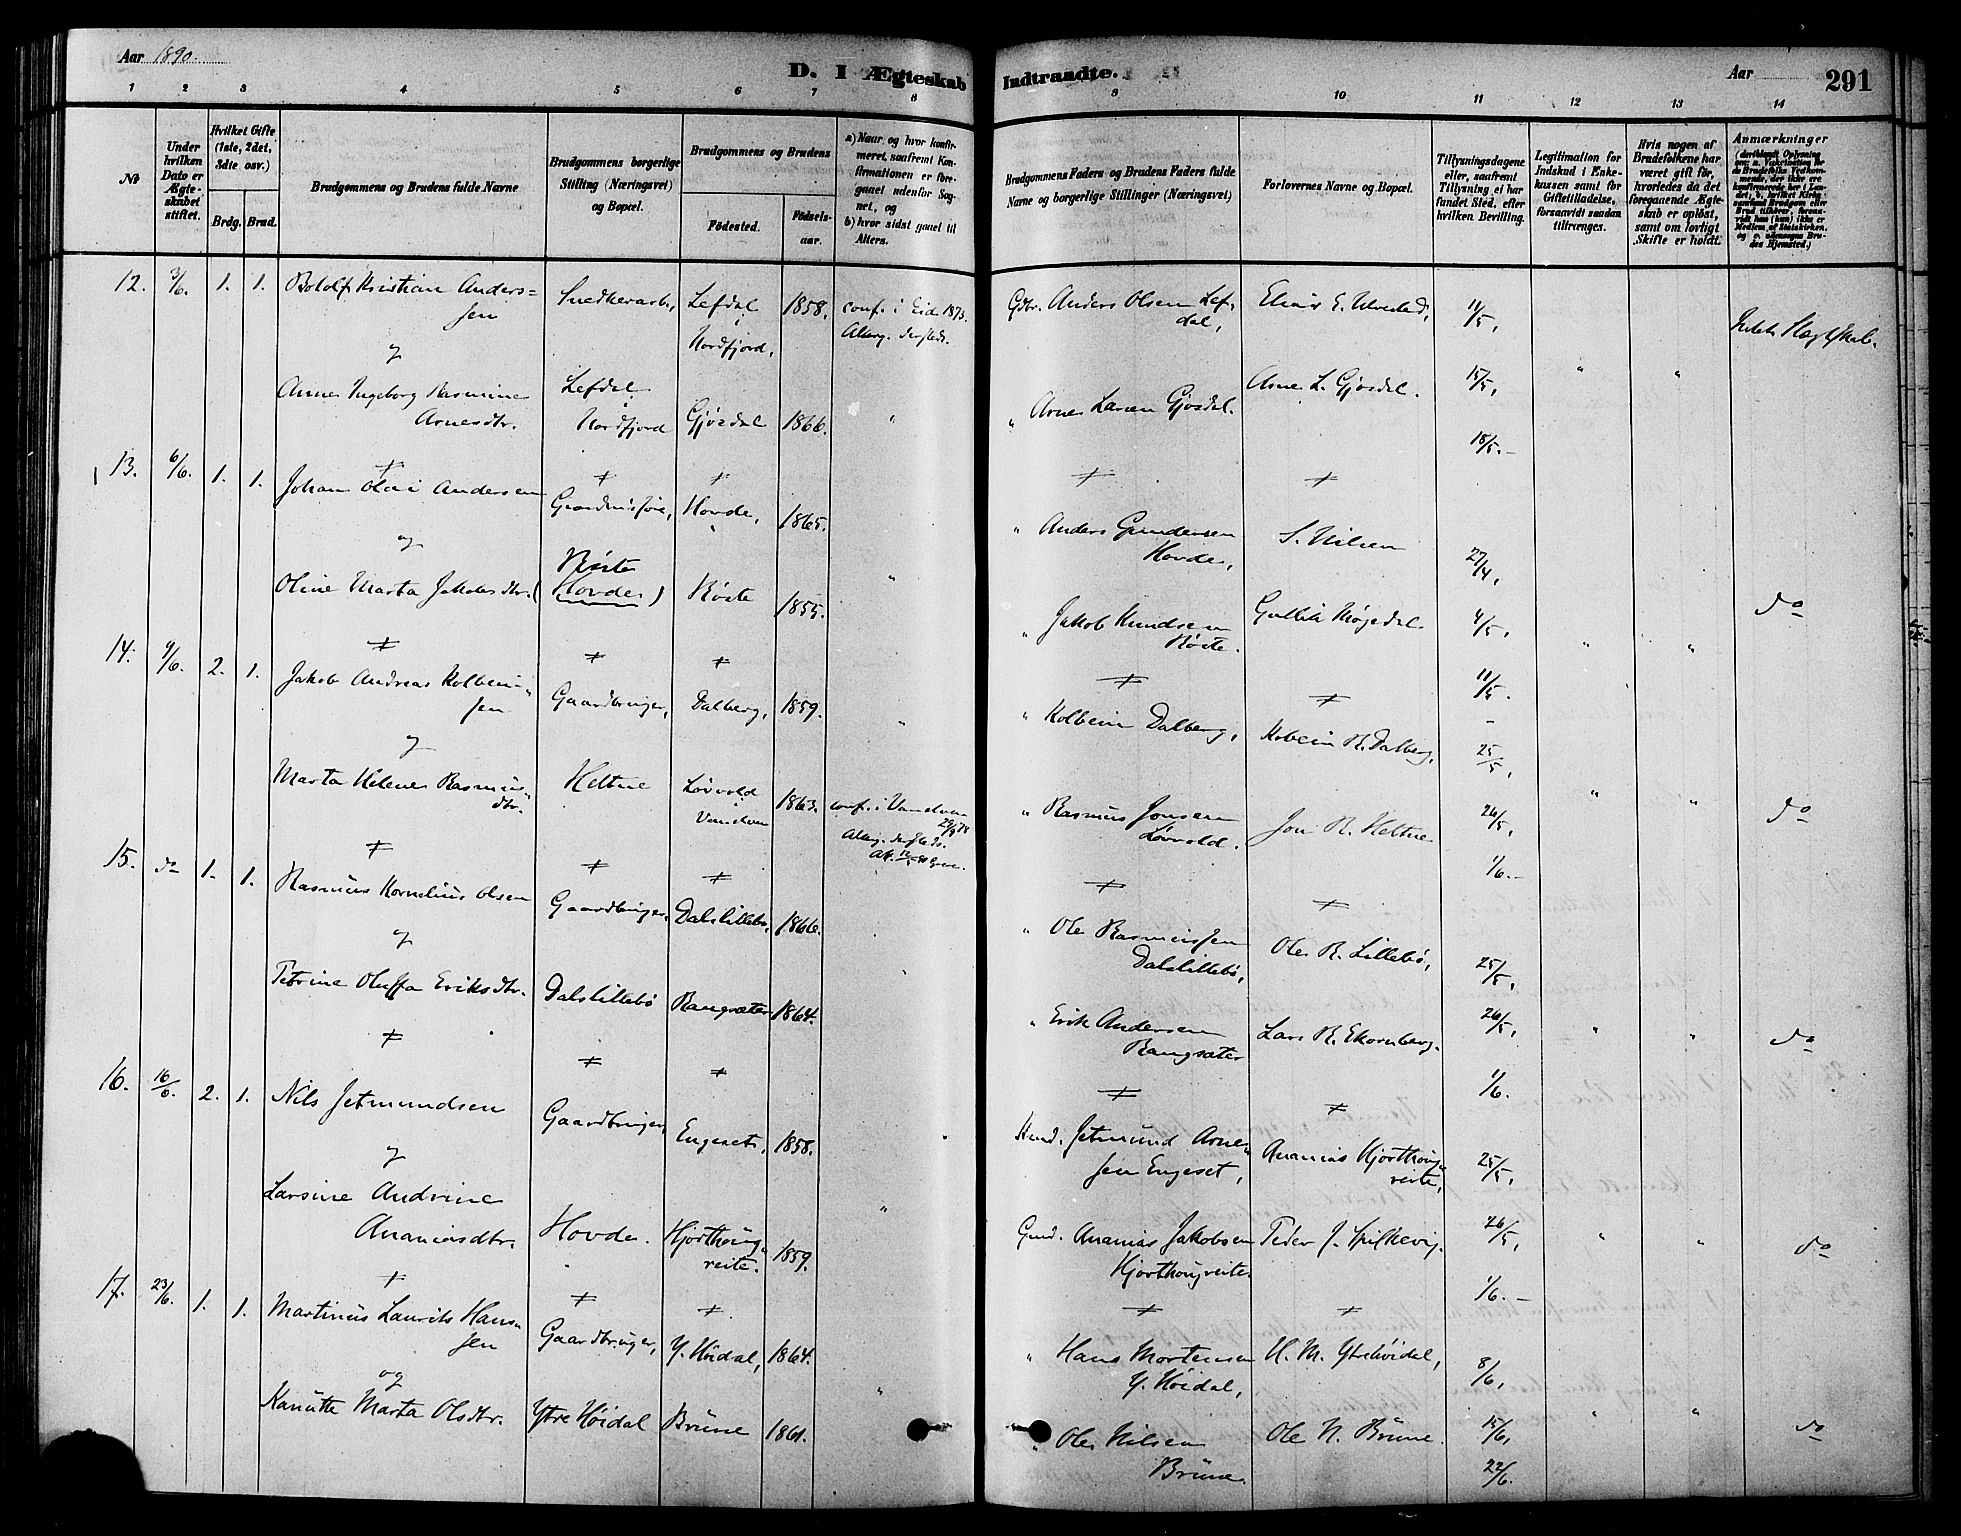 Aar 1890.
D. I Ægteskab Indtraadte.
Aar
291
1 2 3 4 5 6 7 8 9 10 11 12 13 14
No
Under hvilken Dato er Ægteskabet stiftet.
Hvilket Gifte (1ste, 2det, 3die osv.)
Brdg. Brud.
Brudgommens og Brudens fulde Navne
Brudgommens borgerlige Stilling (Næringsvei) og Bopæl.
Brudgommens og Brudens
Fødested.
Fødselsaar.
a) Naar og hvor konfirmeret, saafremt Konfirmationen er foregaaet udenfor Sognet, og
b) hvor sidst gaaet til Alters.
Brudgommens Faders og Brudens Faders fulde Navne og borgerlige Stillinger (Næringsvei)
Forlovernes Navne og Bopæl.
Tillysningsdagene eller, saafremt Tillysning ei har fundet Sted, efter hvilken Bevilling.
Legitimation for Indskud i Enkekassen samt for Giftetilladelse, forsaavidt saadan tiltrænges.
Hvis nogen af Brudefolkene har været gift før, hvorledes da det foregaaende Ægteskab er opløst, samt om lovligt Skifte er holdt.
Anmærkninger
12. 3/6. 1. 1. Bololf Kristian Anders=
sen
Snedkerarb., Lefdal
i
Nordfjord, 1858. conf. i Eid 1873.
Alterg. dersteds.
Gdbr. Anders Olsen Lef-
dal, Elias E. Ulvestad, 11/5,
Intet Slægtskab.
og
Anne Ingeborg Rasmine
Arnesdtr. Lefdal
i
Nordfjord Gjøsdal 1866. "
" Arne Larsen Gjøsdal. Arne L. Gjøsdal. 15/5, " "
18/5.-
13. 6/6. 1. 1. Johan Olai Andersen Hovde, 1865.
" Anders Gundersen
Hovde, S. Nilsen 27/4,
og
Oline Marta Jakobsdtr. ( Røste
Hovde ) Røste 1855. "
" Jakob Knudsen
Røste. Gullik Møgedal. 4/5, " " do
11/5.
14. 9/6. 2. 1. Jakob Andreas Kolbein-
sen Gaardbruger, Dalberg, 1859. "
" Kolbein Dalberg, Kobein R. Dalberg, 25/5,
og
Marta Helene Rasmus-
dtr. Heltne Løvvold
Vanelven 1863. conf. i Vanelven
29/9 78
Alterg. dersteds.
" Rasmus Jonsen
Løvvold. Jon R. Heltne 26/5, " " do
1/6.-
15. do 1. 1. Rasmus Kornelius Olsen Gaardbruger, Dalslillebø, 1866.
" Ole Rasmussen
Dalslillebø, Ole R. Lillebø, 25/5,
og
Petrine Oluffa Eriksdtr. Dalslillebø Bangsæter 1864.
" Erik Andersen
Bangsæter Lars R. Ekornberg. 26/5, " " do
1/6.
16. 16/6. 2. 1. Nils Jetmundsen Gaardbruger, Engeset, 1858. "
Jetmund Arne-
sen Engeset, Ananias Hjorthoug-
reite, 25/5,
og
Larsine Andrine
Ananiasdtr. Hovde. Hjorthoug-
reite. 1859. "
Ananias Jakobsen
Hjorthougreite. Peder J. Spilkevig. 26/5, " " do
1/6.-
17. 23/6. 1. 1. Martinus Laurits Hans-
sen Gaardbruger, Y. Høidal, 1864.
" Hans Mortensen
Y. Høidal, H. M. Ytrehøidal, 8/6,
og
Kanutte Marta Olsdtr. Ytre Høidal Brune 1861. "
" Ole Nilsen
Brune. Ole N. Brune. 15/6, " " do
22/6.